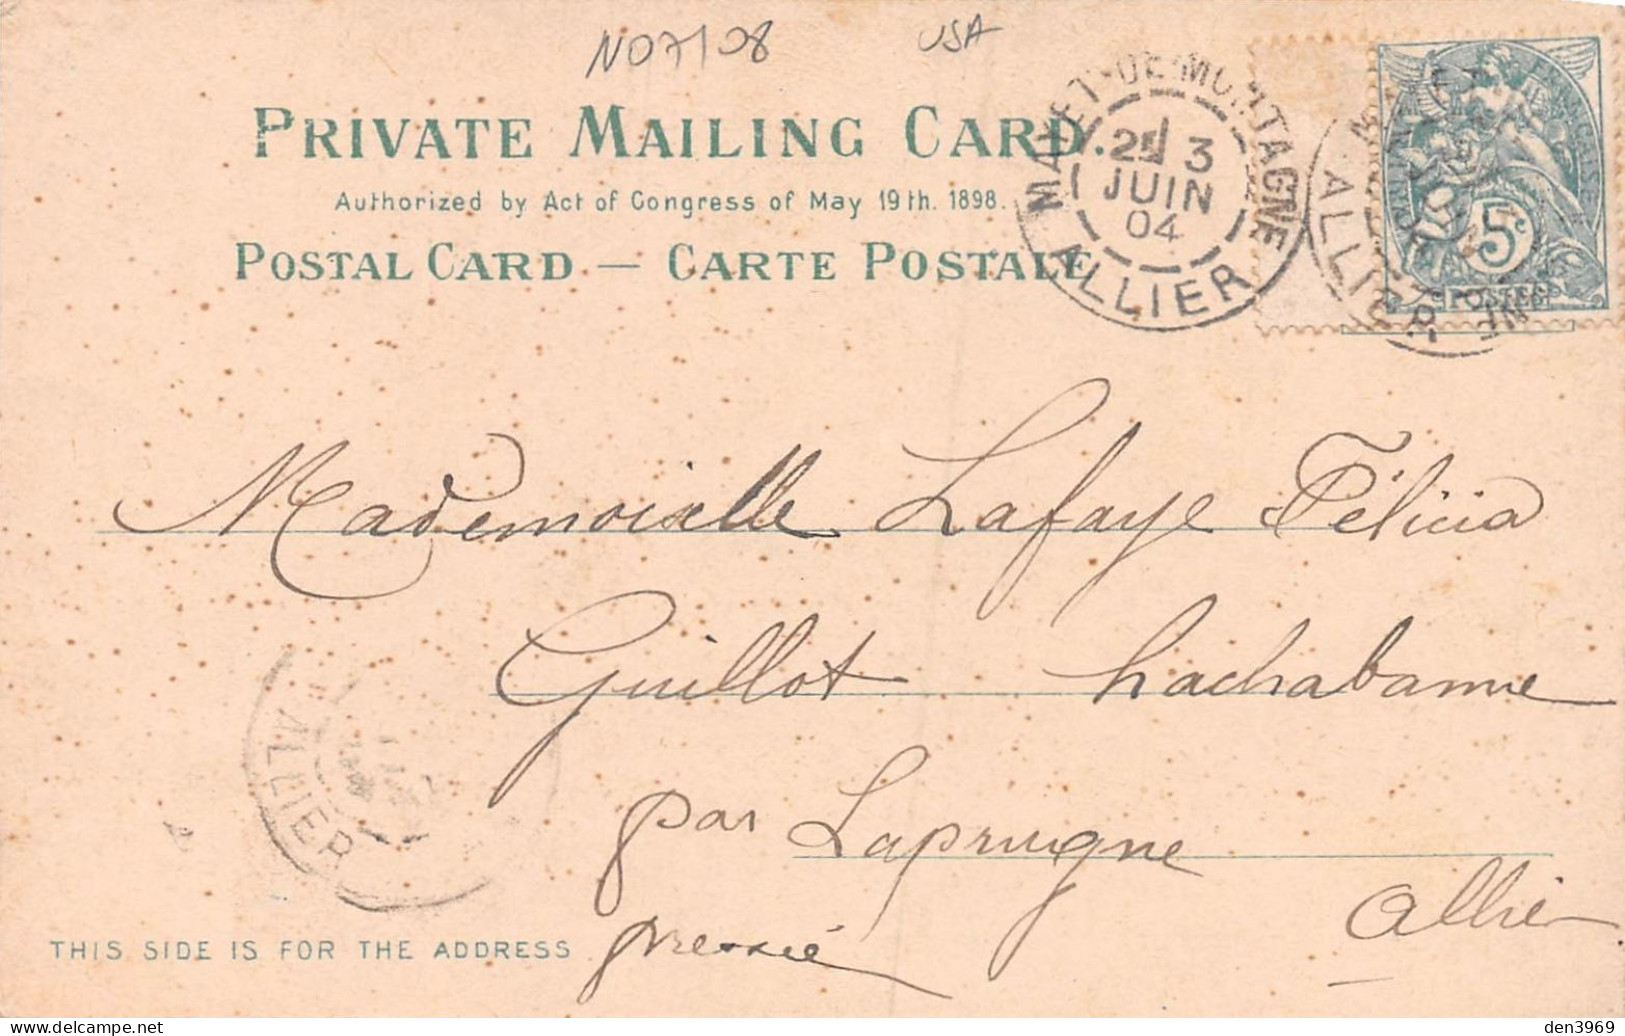 NO7108 USA
PRIVATE MAILING CARD.
Authorized by Act of Congress of May 19th. 1898.
POSTAL CARD — CARTE POSTALE
MAYET-DE-MONTAGNE
3
JUIN
04
ALLIER
ALLIER
5c
POSTES
Mademoiselle Lafaye Félicia
Guillot Lachabanne
par Laprugne
Allier
pressée
ALLIER
THIS SIDE IS FOR THE ADDRESS
den3969